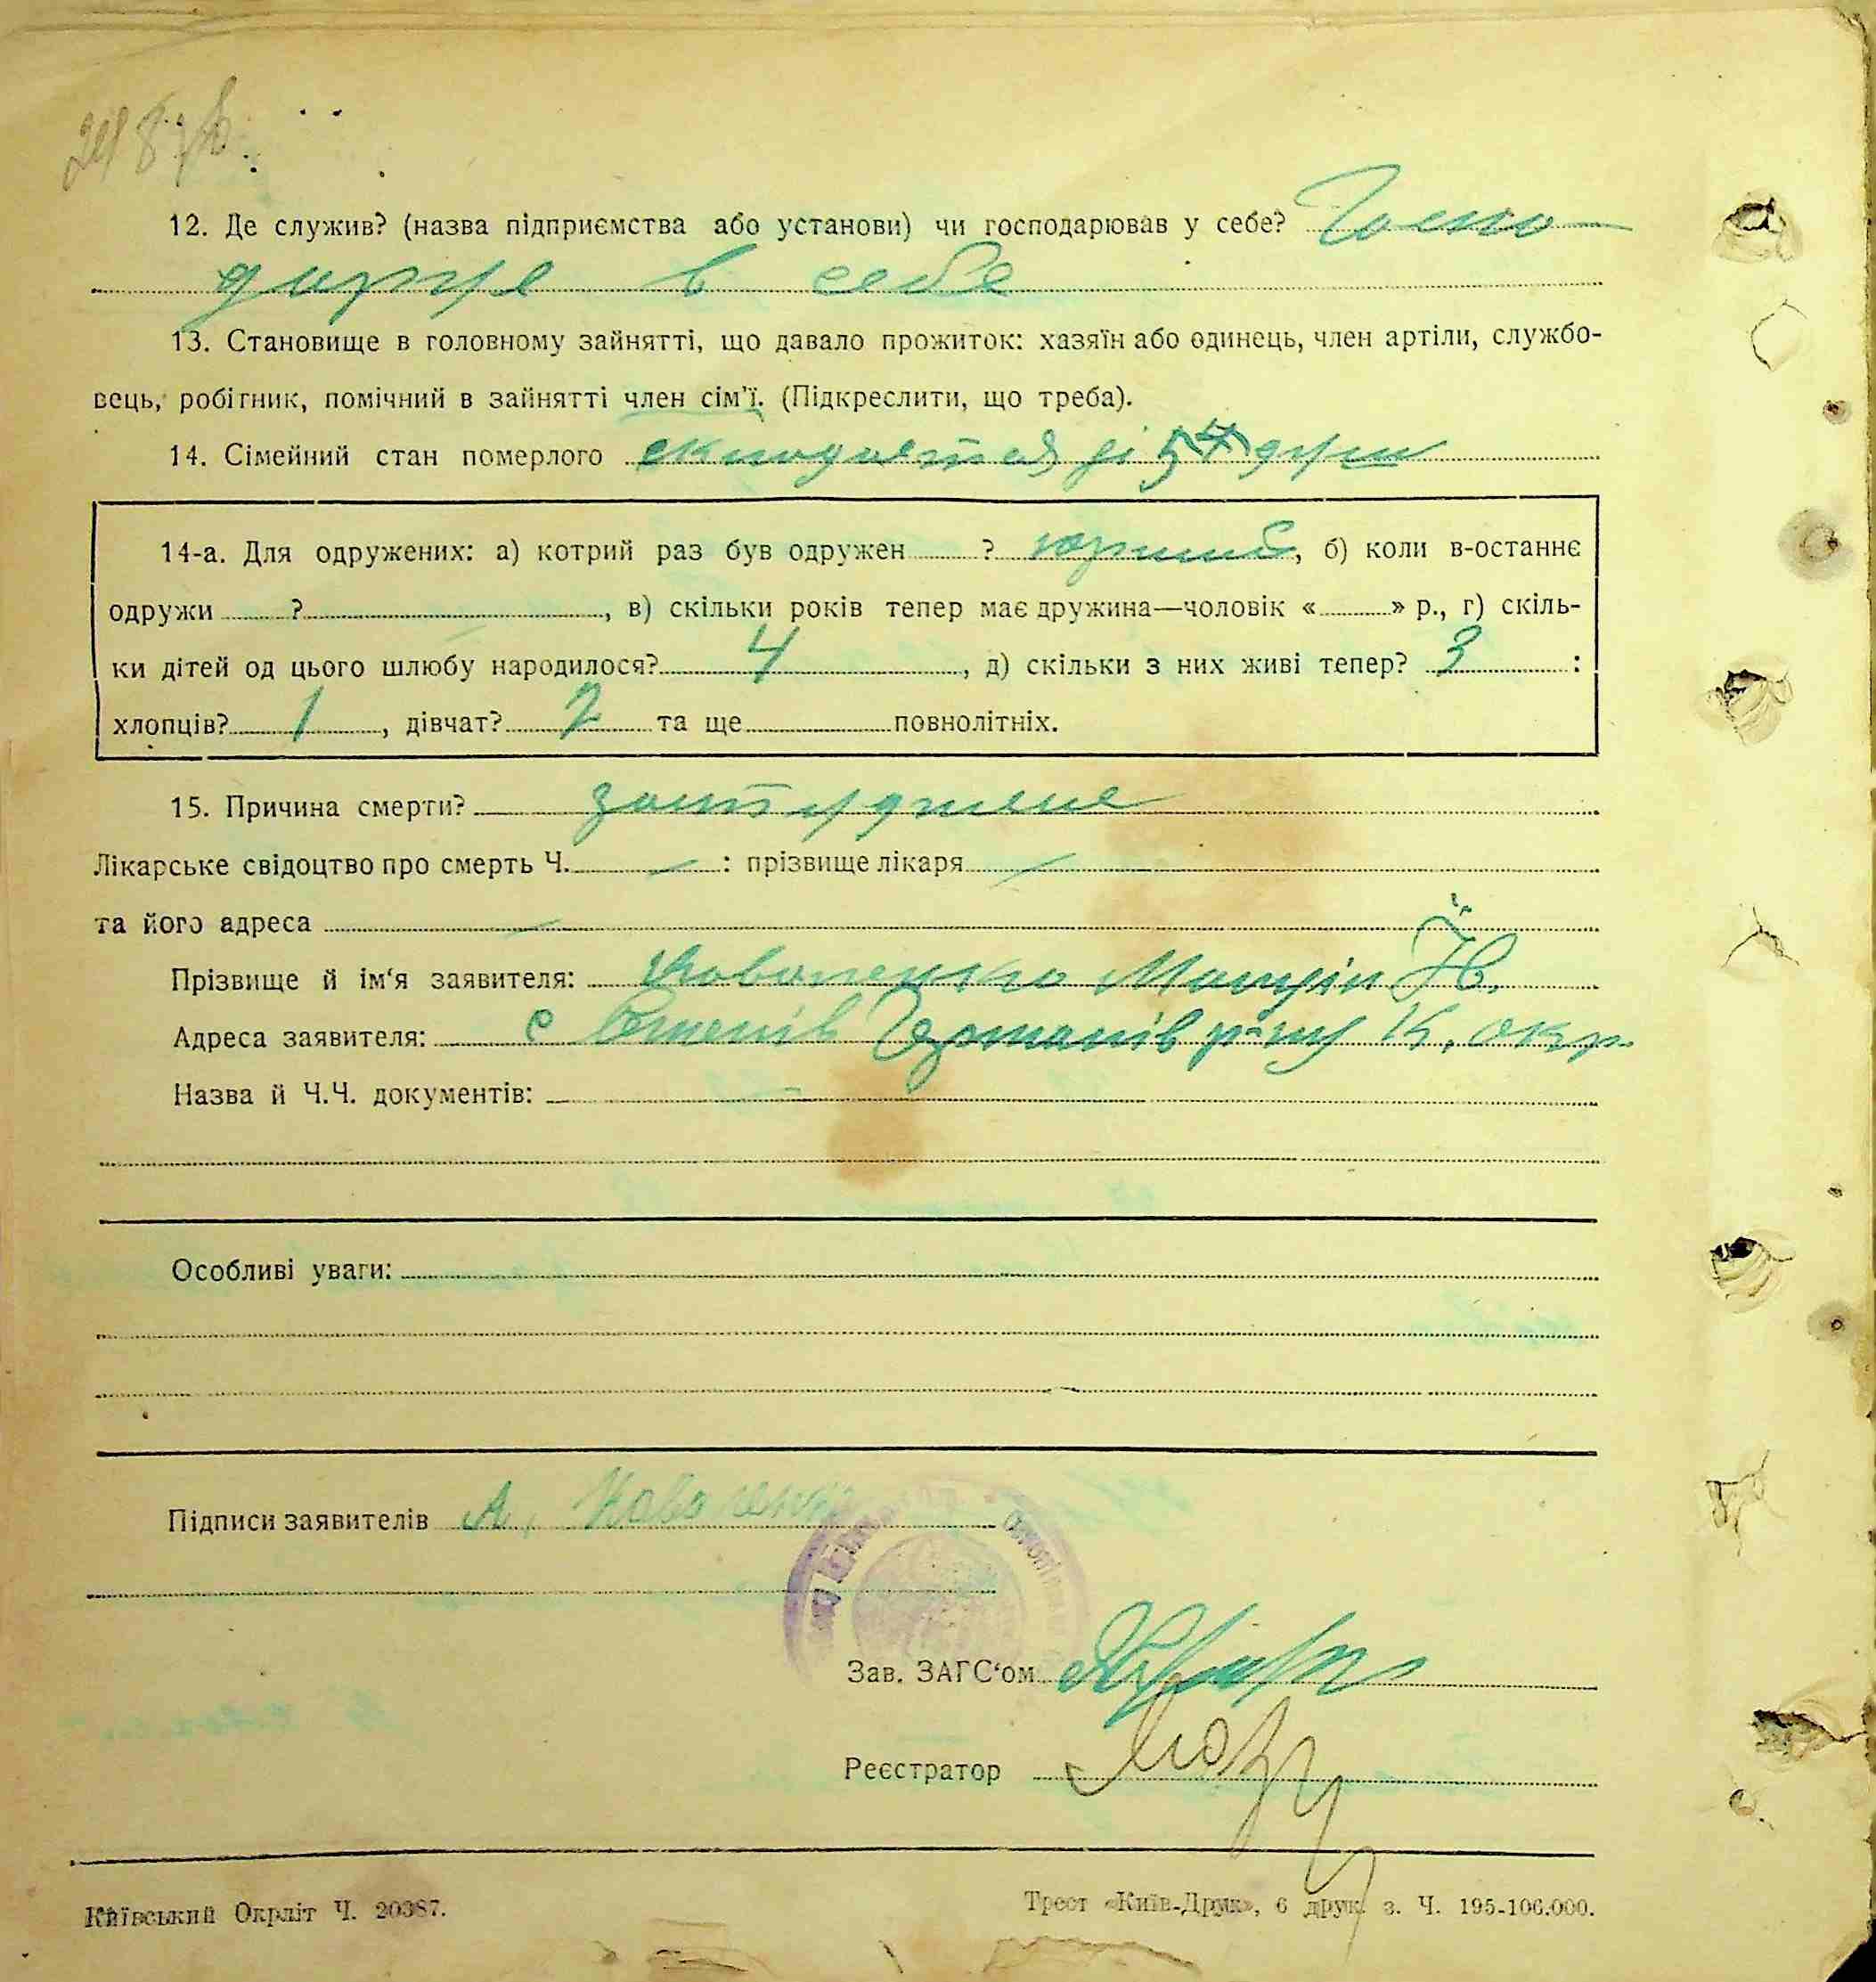 12. Де служив? (назва підприємства або установи) чи господарював у себе? Госпо-
дарує в себе
13. Становище в головному зайнятті, що давало прожиток: хазяїн або одинець, член артіли, службо-
вець, робітник, помічний в зайнятті член сім'ї. (Підкреслити, що треба).
14. Сімейний стан померлого складается зі 5 душ
14-а. Для одружених: а) котрий раз був одружен ? перший, б) коли в-останнє
одружи ? , в) скільки років тепер має дружина—чоловік « » р., г) скіль-
ки дітей од цього шлюбу народилося? 4 , д) скільки з них живі тепер? 3 :
хлопців? 1 , дівчат? 2 та ще повнолітніх.
15. Причина смерти? заструджене
Лікарське свідоцтво про смерть Ч. — : прізвище лікаря —
та його адреса —
Прізвище й ім'я заявителя: Коваленко
Адреса заявителя: с Германів р-ну К. окр.
Назва й Ч.Ч. документів: —
Особливі уваги:
Підписи заявителів А. Коваленко
Зав. ЗАГС'ом
Реєстратор
Київський Окрліт Ч. 20387.
Трест «Київ-Друк», 6 друк. з. Ч. 195-106.000.